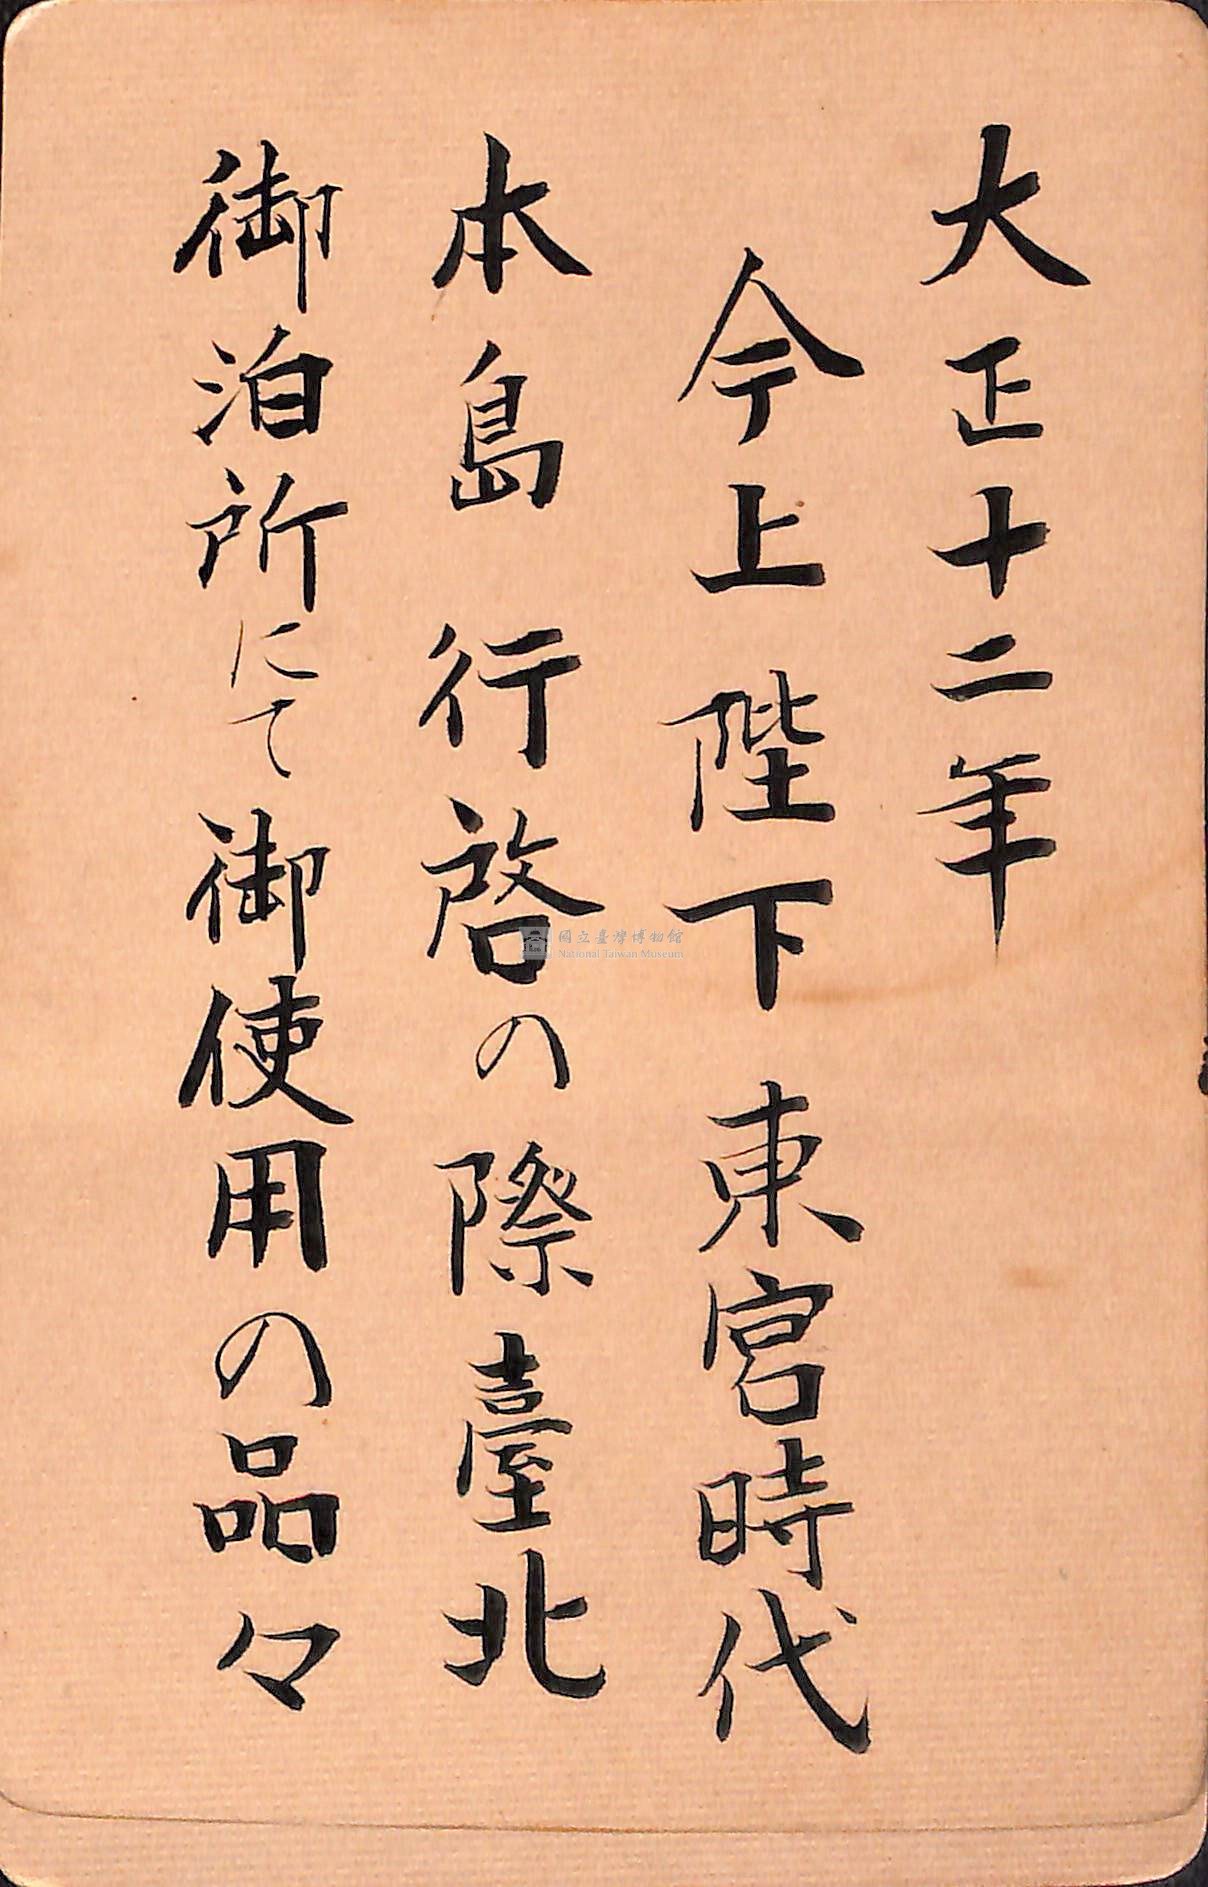 大正十二年
今上陛下東宮時代
本島行啓の際臺北
御泊所にて御使用の品々
國立臺灣博物館
National Taiwan Museum